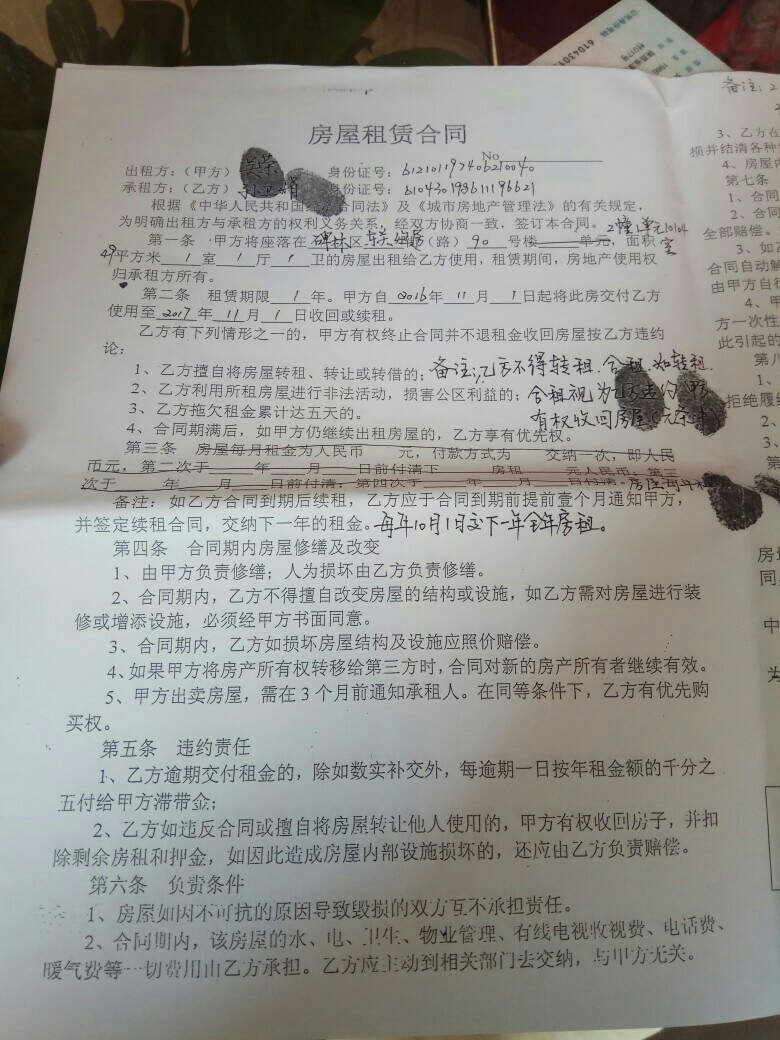 房屋租赁合同
No
出租方：（甲方） 身份证号：
承租方：（乙方） 身份证号：
根据《中华人民共和国经济合同法》及《城市房地产管理法》的有关规定，
为明确出租方与承租方的权利义务关系，经双方协商一致，签订本合同。
第一条 甲方将座落在碑林区 （路）90号楼 单元，面积 2幢1单元10104室
49平方米1室1厅1卫的房屋出租给乙方使用，租赁期间，房地产使用权
归承租方所有。
第二条 租赁期限1年。甲方自2016年11月1日起将此房交付乙方
使用至2017年11月1日收回或续租。
乙方有下列情形之一的，甲方有权终止合同并不退租金收回房屋按乙方违约
论：
1、乙方擅自将房屋转租、转让或转借的；备注：乙方不得转租.合租.如转租.
2、乙方利用所租房屋进行非法活动，损害公区利益的；合租视为乙方违约
3、乙方拖欠租金累计达五天的。 有权收回房屋
4、合同期满后，如甲方仍继续出租房屋的，乙方享有优先权。
第三条 房屋每月租金为人民币 元，付款方式为 交纳一次，即人民
币元，第二次于 年 月 日前付清下 房租 元人民币；第三
次于 年 月 日前付清；第四次于 年 月 日前付清。
备注：如乙方合同到期后续租，乙方应于合同到期前提前壹个月通知甲方，
并签定续租合同，交纳下一年的租金。每年10月1日交下一年全年房租。
第四条 合同期内房屋修缮及改变
1、由甲方负责修缮；人为损坏由乙方负责修缮。
2、合同期内，乙方不得擅自改变房屋的结构或设施，如乙方需对房屋进行装
修或增添设施，必须经甲方书面同意。
3、合同期内，乙方如损坏房屋结构及设施应照价赔偿。
4、如果甲方将房产所有权转移给第三方时，合同对新的房产所有者继续有效。
5、甲方出卖房屋，需在3个月前通知承租人。在同等条件下，乙方有优先购
买权。
第五条 违约责任
1、乙方逾期交付租金的，除如数实补交外，每逾期一日按年租金额的千分之
五付给甲方滞带金；
2、乙方如违反合同或擅自将房屋转让他人使用的，甲方有权收回房子，并扣
除剩余房租和押金，如因此造成房屋内部设施损坏的，还应由乙方负责赔偿。
第六条 负责条件
1、房屋如因不可抗的原因导致毁损的双方互不承担责任。
2、合同期内，该房屋的水、电、卫生、物业管理、有线电视收视费、电话费、
暖气费等一切费用由乙方承担。乙方应主动到相关部门去交纳，与甲方无关。
备注：2
3、乙方在
损并结清各种
4、房屋内
第七条
1、合同
2、合同
全部赔偿。
3、如乙
合同自动解
由甲方自行
4、甲
方一次性
此引起的
第八
1、
拒绝履约
2、
3、
房
同
中
为